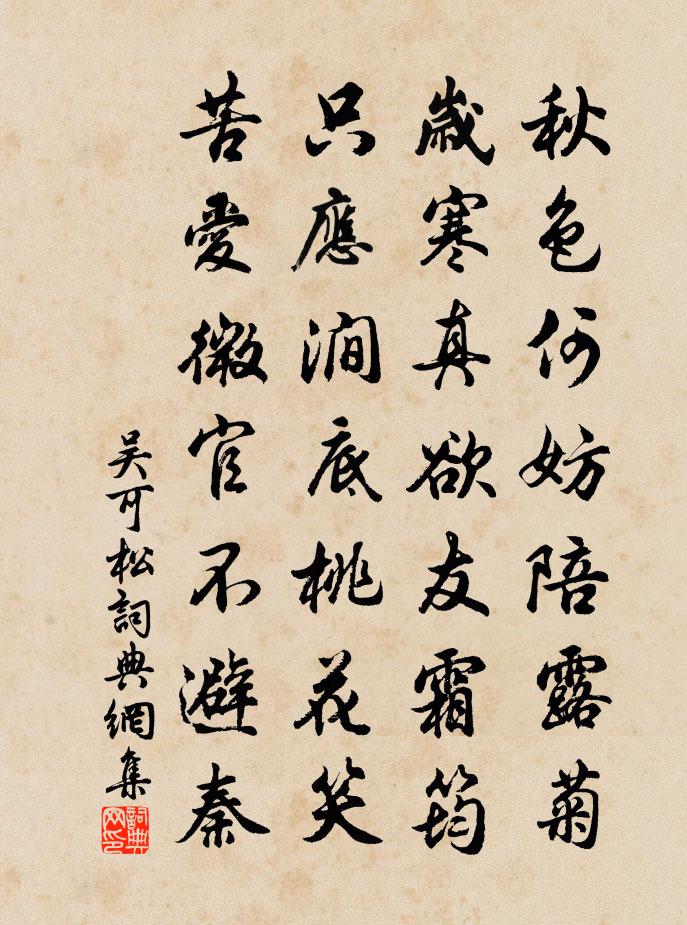 秋色何妨陪露菊
歲寒真欲友霜筠
只應澗底桃花笑
苦愛微官不避秦
吴可松詞典網集
詞典網印